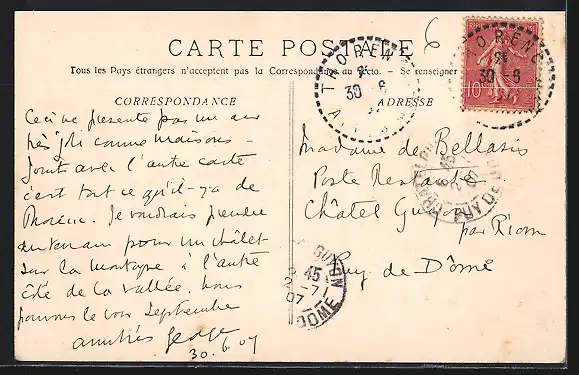 CARTE POSTALE
6
Tous les Pays étrangers n'acceptent pas la Correspondance au recto. - Se renseigner
CORRESPONDANCE
ADRESSE
THORENC
30 - 6
THORENC
30 - 6
10
Ceci ne présente pas un aspect
très joli comme maisons -
Joint avec l'autre carte
c'est tout ce qu'il y a de
Thorenc. Je voudrais prendre
un terrain pour un châlet
sur la montagne à l'autre
côté de la vallée. Nous
pourrons le voir Septembre
amitiés George
30.6.07
Madame de Bellasis
Poste Restante
Châtel Guyon
par Riom
Puy de Dôme
GUYON
45
2 - 7
07
DOME